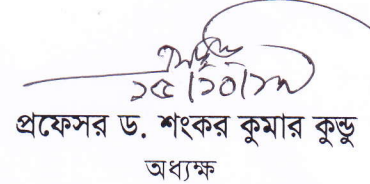 ১৫/১০/১৭
প্রফেসর ড. শংকর কুমার কুন্ডু
অধ্যক্ষ